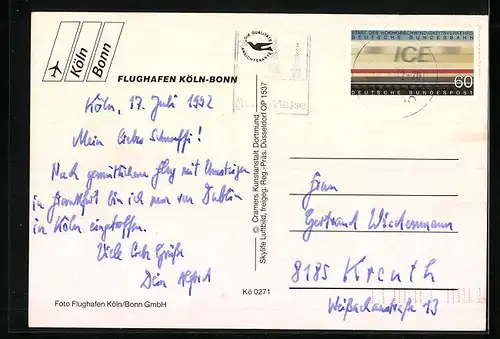 Köln
Bonn
FLUGHAFEN KÖLN-BONN
Köln, 17. Juli 1992
Mein liebes Schnuffi!
Nach gemütlichem Flug mit Umsteigen
in Frankfurt bin ich nun von Dublin
in Köln eingetroffen.
Viele liebe Grüße
Dein Alfred
Foto Flughafen Köln/Bonn GmbH
Kö 0271
© Cramers Kunstanstalt Dortmund
Skylife Luftbild, freigeg. Reg.-Präs. Düsseldorf OP 1537
DIE QUALITÄTS
ANSICHTSKARTE
Messe
START DES HOCHGESCHWINDIGKEITSVERKEHRS
DEUTSCHE BUNDESBAHN
ICE
60
DEUTSCHE BUNDESPOST
Frau
Gertraud Wiedenmann
8185 Kreuth
Weißachaustraße 13